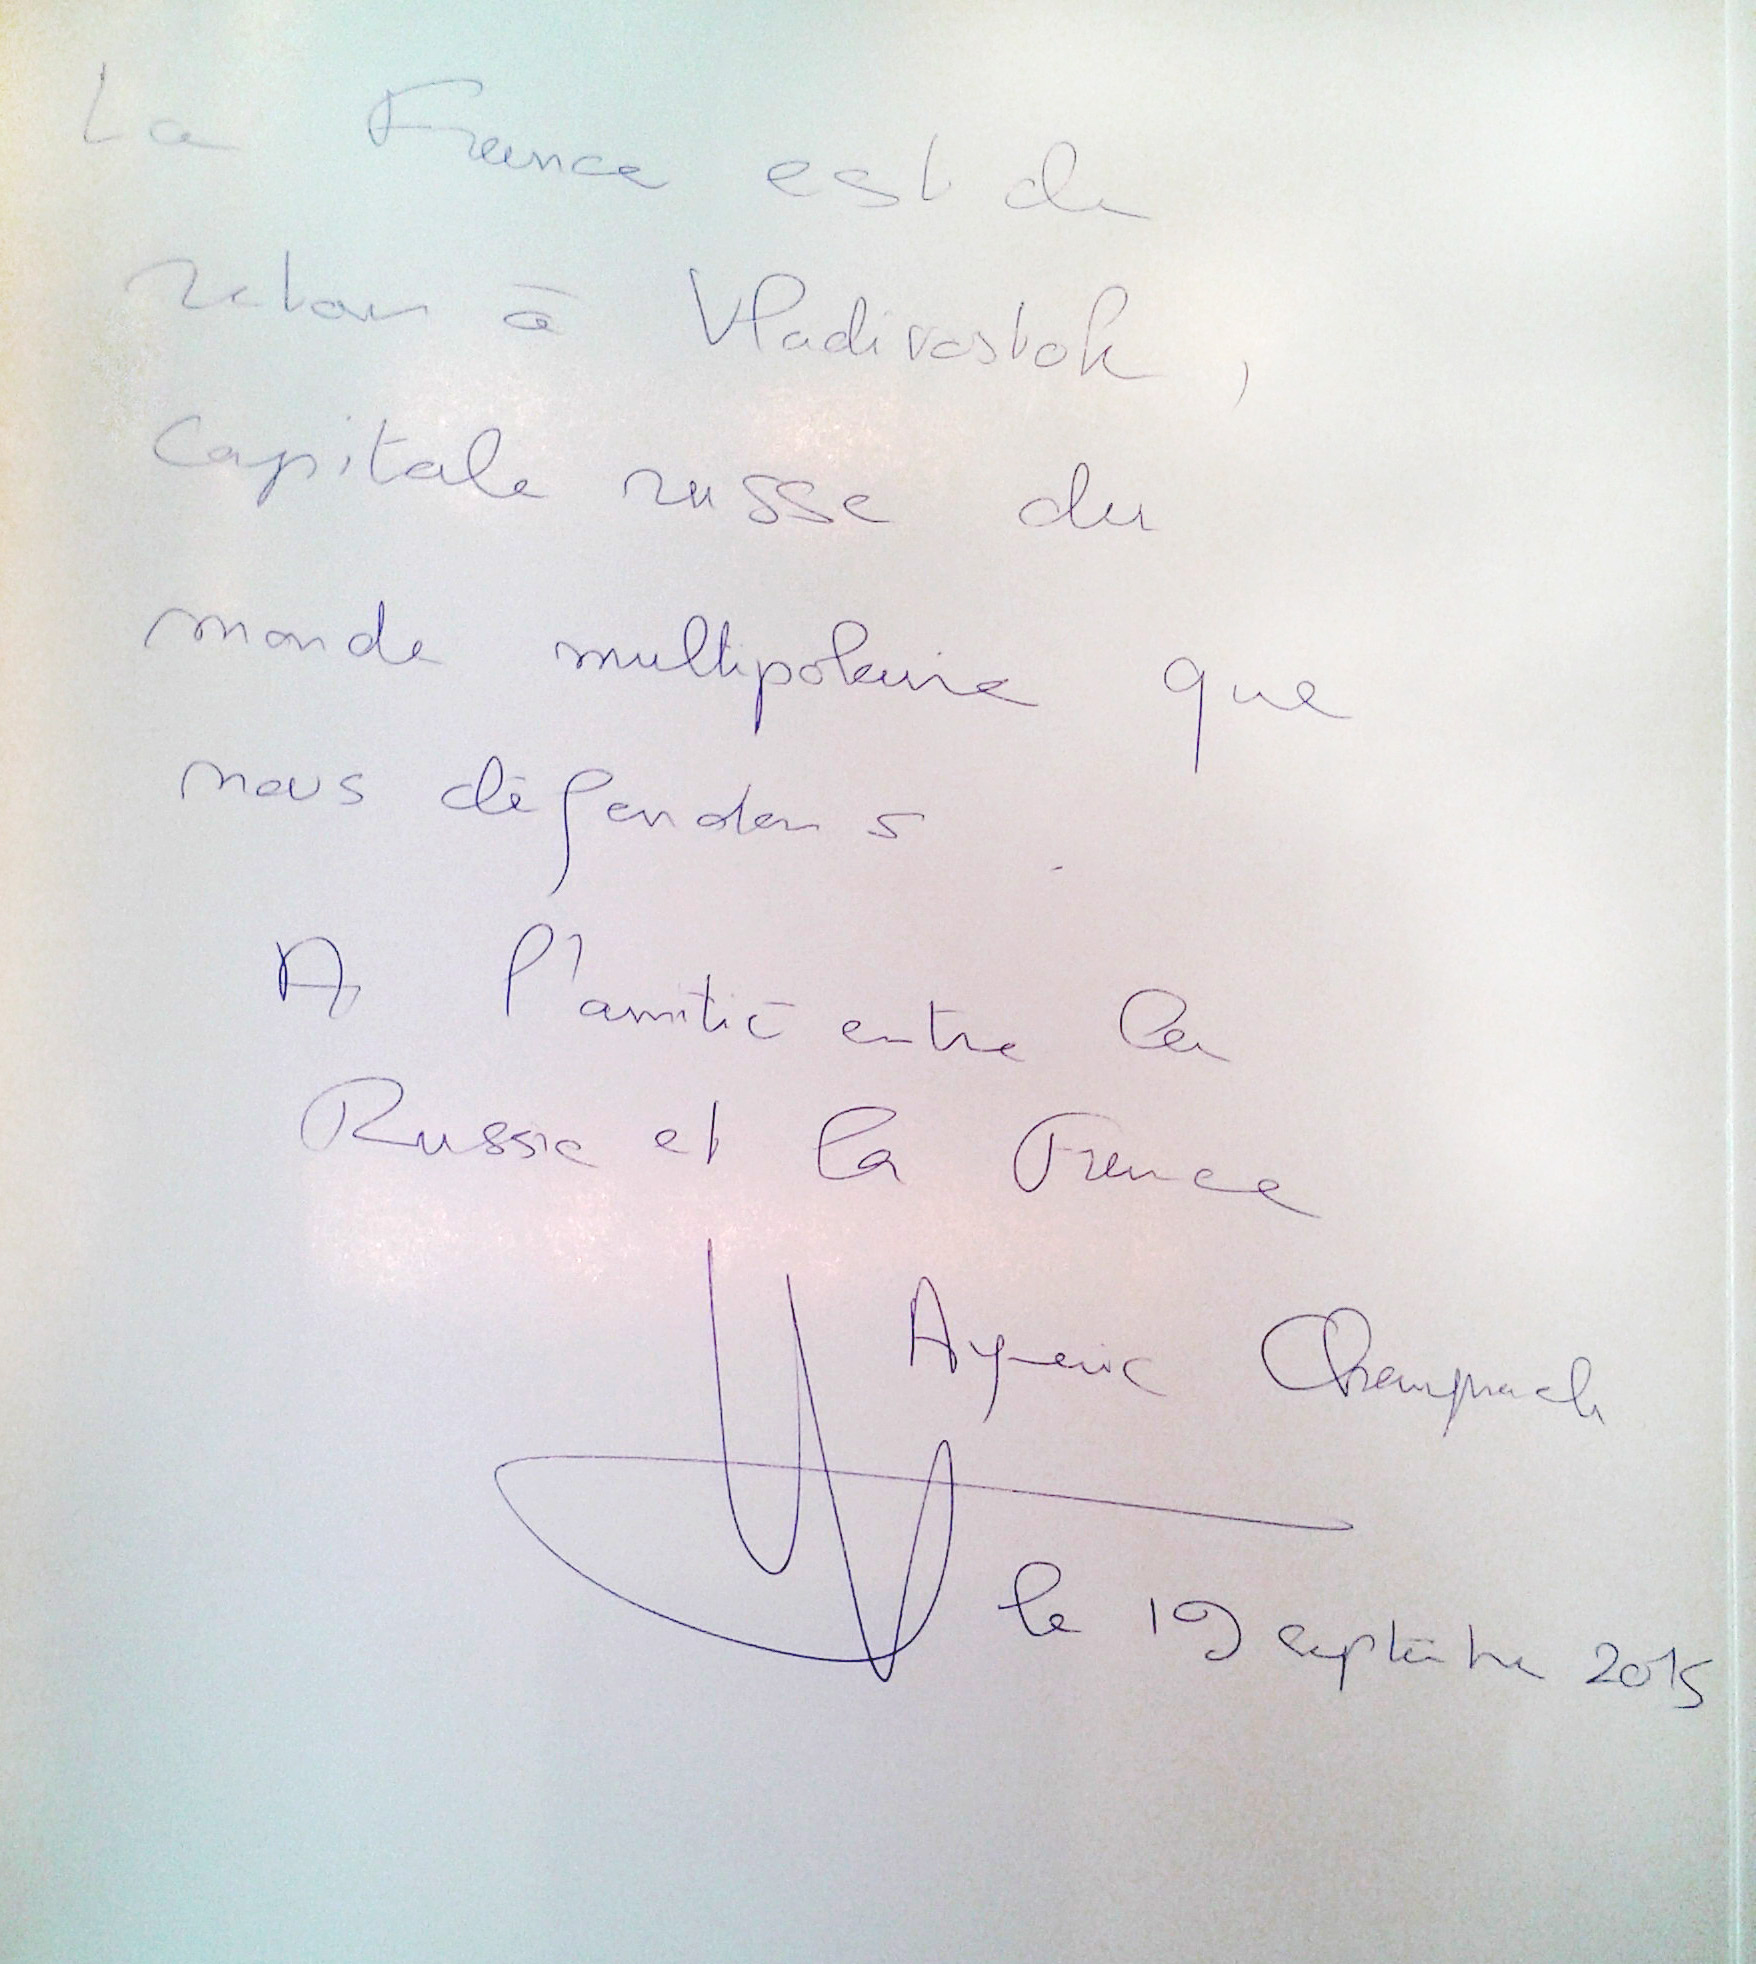 La France est de
retour à Vladivostok,
Capitale russe du
monde multipolaire que
nous défendons.
A l'amitié entre la
Russie et la France
Aymeric Chauprade
le 19 septembre 2015